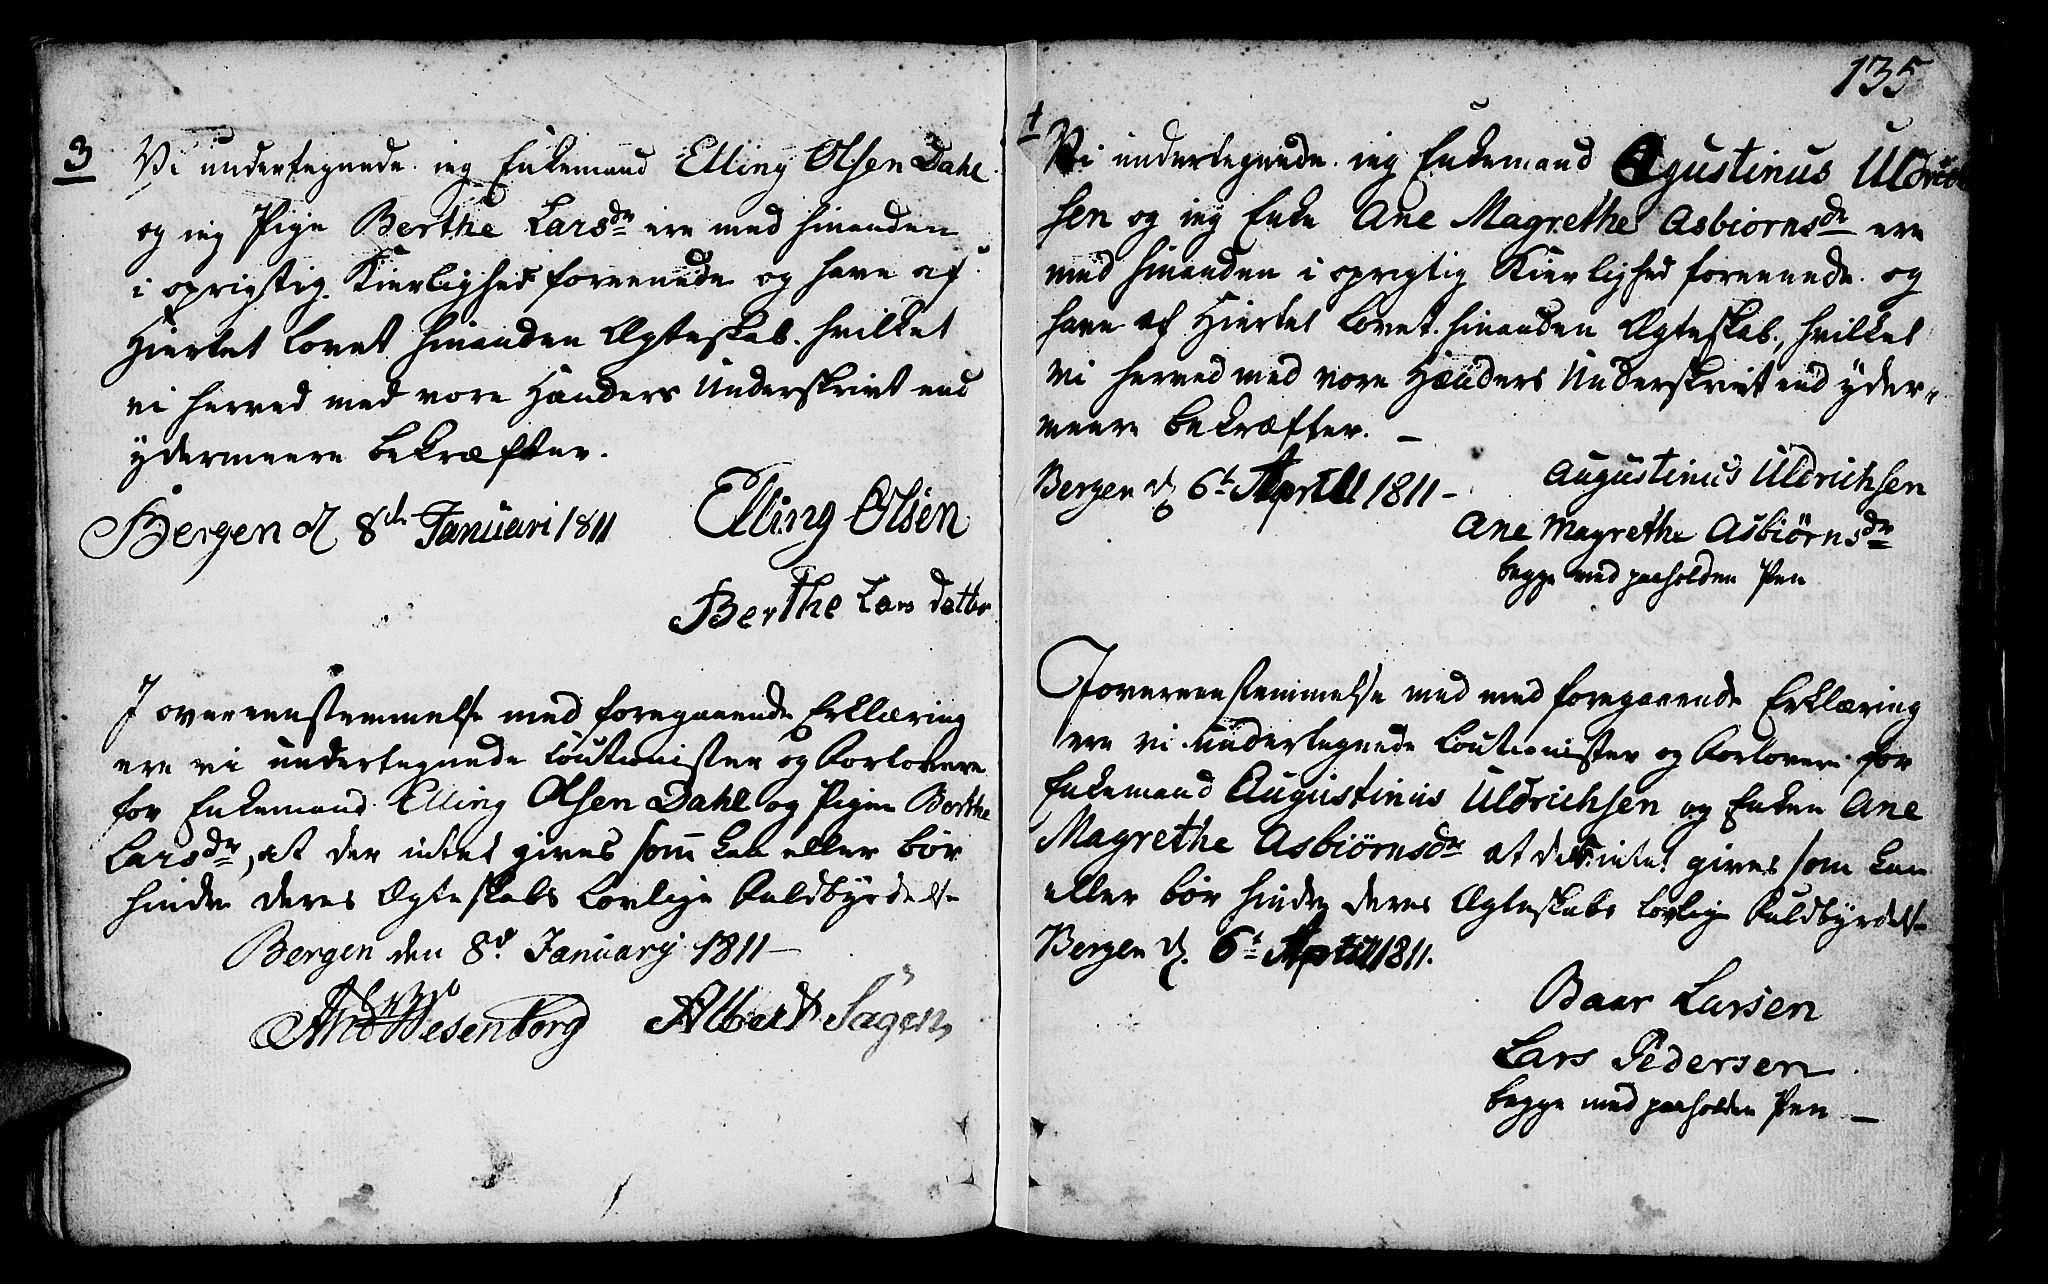 3
Vi undertegnede. ieg Enkemand Elling Olsen Dahl.
og ieg Pige Berthe Larsdr ere med hinanden
i oprigtig Kierlighed foreenede og have af
Hiertet lovet hinanden Ægteskab. hvilket
vi herved med vore Hænders Underskrivt end
ydermeere bekræfter.
Bergen d 8de Januari 1811
Elling Olsen
Berthe Lars datter
I overeenstemmelse med foregaaende Erklæring
ere vi undertegnede Coutionister og Forlovere
for Enkemand Elling Olsen Dahl og Pigen Berthe
Larsdr, at der intet gives som kan eller bør
hindre deres Ægteskabs Lovlige Fuldbyrdelse
Bergen den 8d January 1811 —
Wesenborg Albert Sagen
135
4
Vi undertegnede. ieg Enkemand Agustinus Uldrich
sen og ieg Enke Ane Magrethe Asbiornsdr ere
med hinanden i oprigtig Kierlighed foreenede og
have af Hiertet lovet hinanden Ægteskab, hvilket
vi herved med vore Hænders Underskrivt end yder-
meere bekræfter. —
Bergen d 6t April 1811 —
Augustinus Uldrichsen
Ane Magrethe Asbiørnsdr
begge med paaholden Pen
I overeenstemmelse med med foregaaende Erklæring
ere vi undertegnede Coutionister og Forlovere for
Enkemand Augustinus Uldrichsen og Enken Ane
Magrethe Asbiørnsdr at der intet gives som kan
eller bør hindre deres Ægteskabs lovlige Fuldbyrdelse
Bergen d. 6t April 1811.
Baar Larsen
Lars Pedersen
begge med paaholden Pen —